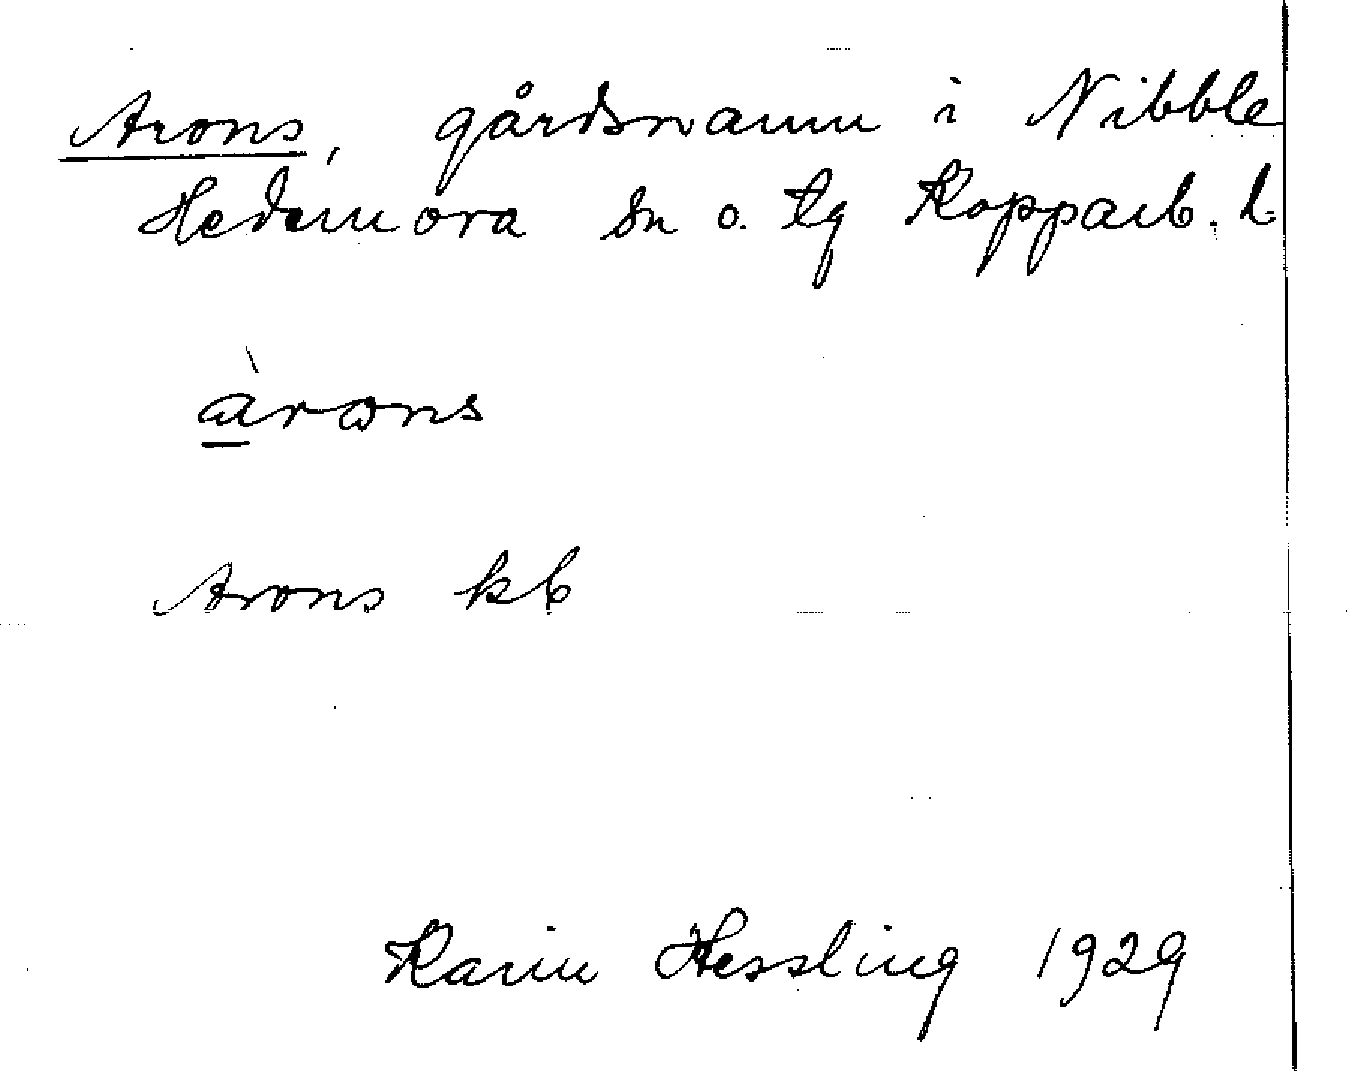 Arons, gårdsnamn i Nibble
Hedemora sn o. tg Kopparb. l.
àrons
Arons kb
Karin Hessling 1929